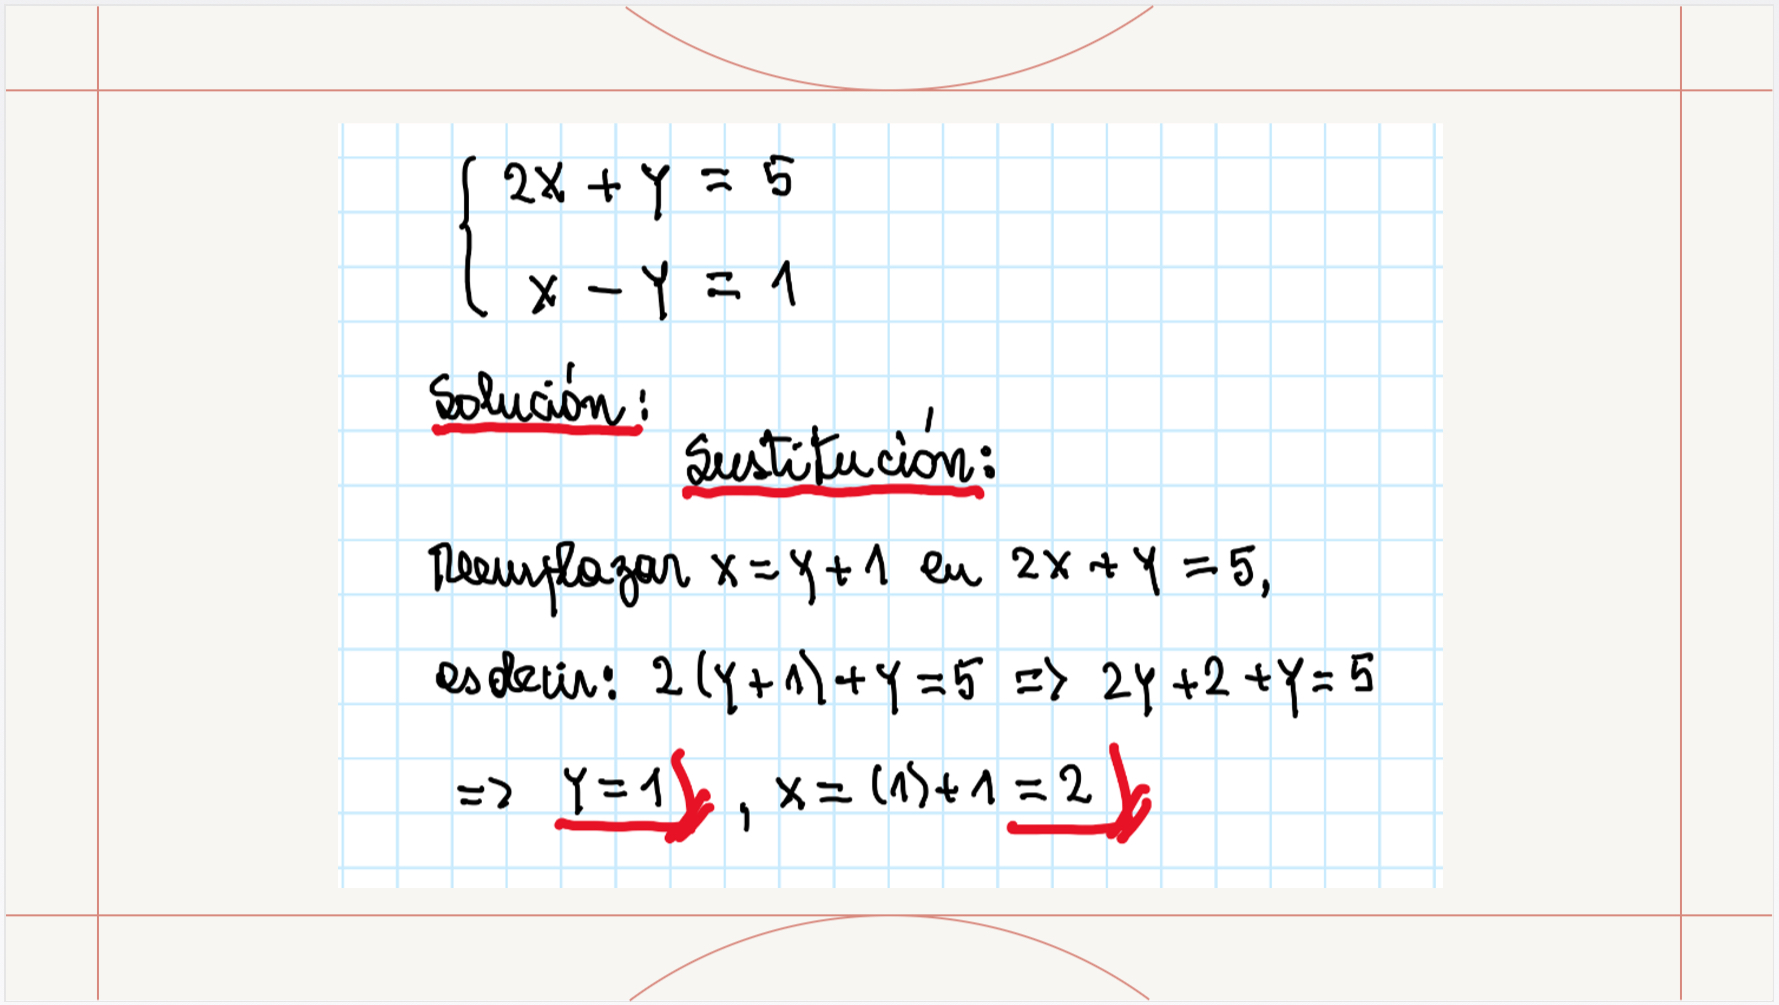 2x + y = 5
x - y = 1
Solución:
Sustitución:
Reemplazar x = y + 1 en 2x + y = 5,
es decir: 2(y + 1) + y = 5 => 2y + 2 + y = 5
=> y = 1, x = (1) + 1 = 2